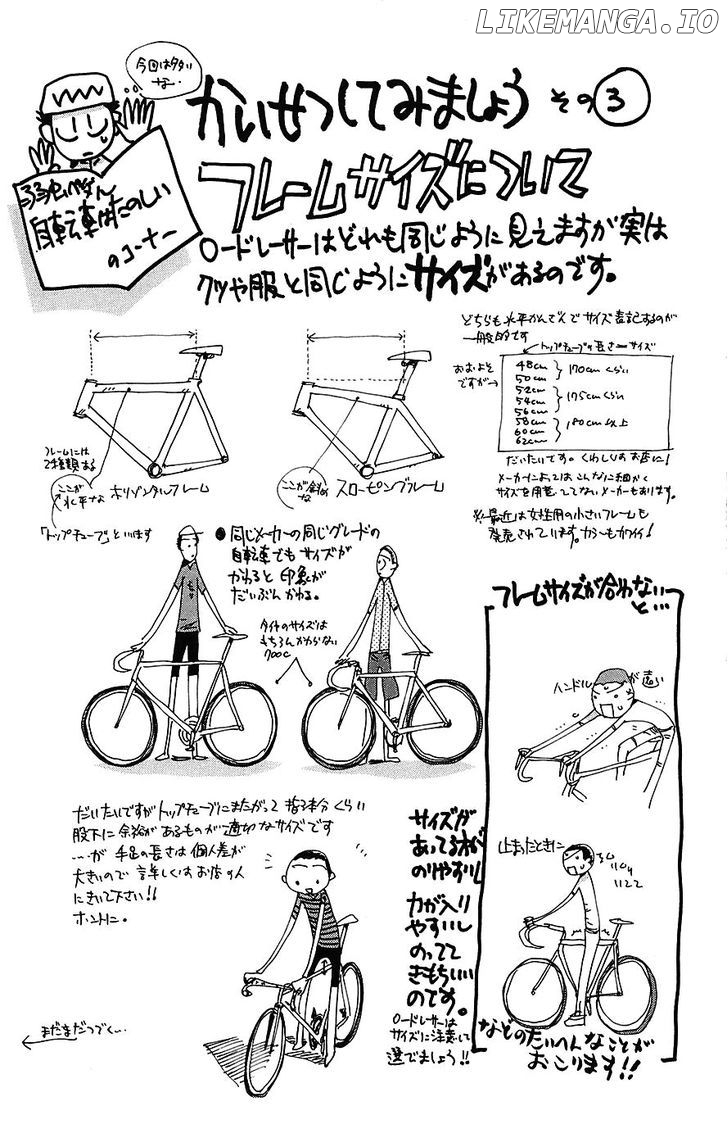 LIKEMANGA.IO
今回はタタい
な…
かいせつしてみましょう その3
弱虫ペダル
自転車はたのしい
のコーナー
フレームサイズについて
ロードレーサーはどれも同じように見えますが実は
クツや服と同じようにサイズがあるのです。
どちらも水平かんさんでサイズ表記するのが
一般的です
トップチューブの長さ=サイズ
おおよそ
ですが→
48cm
50cm
170cmくらい
52cm
54cm
56cm
175cmくらい
58cm
60cm
62cm
180cm以上
だいたいです。くわしくはお店に!
メーカーによってはこんなに細かく
サイズを用意してないメーカーもあります。
※最近は女性用の小さいフレームも
発売されています。カラーもカワイイ!
フレームには
2種類ある
ここが
水平な
ホリゾンタルフレーム
ここが斜めな
スローピングフレーム
「トップチューブ」といいます
●同じメーカーの同じグレードの
自転車でもサイズが
かわると印象が
だいぶんかわる。
タイヤのサイズは
もちろんかわらない
700c
フレームサイズが合わない
と…
ハンドルが遠い
止まったときに
などのたいへんなことが
おこります!!
だいたいですがトップチューブにまたがって指3本分くらい
股下に余裕があるものが適切なサイズです
…が手足の長さは個人差が
大きいので詳しくはお店の人
にきいて下さい!!
ホントに。
サイズが
あってる方が
のりやすいし
力が入り
やすいし
のってて
きもちいい
のです。
ロードレーサーは
サイズに注意して
選びましょう!!
まだまだつづく…